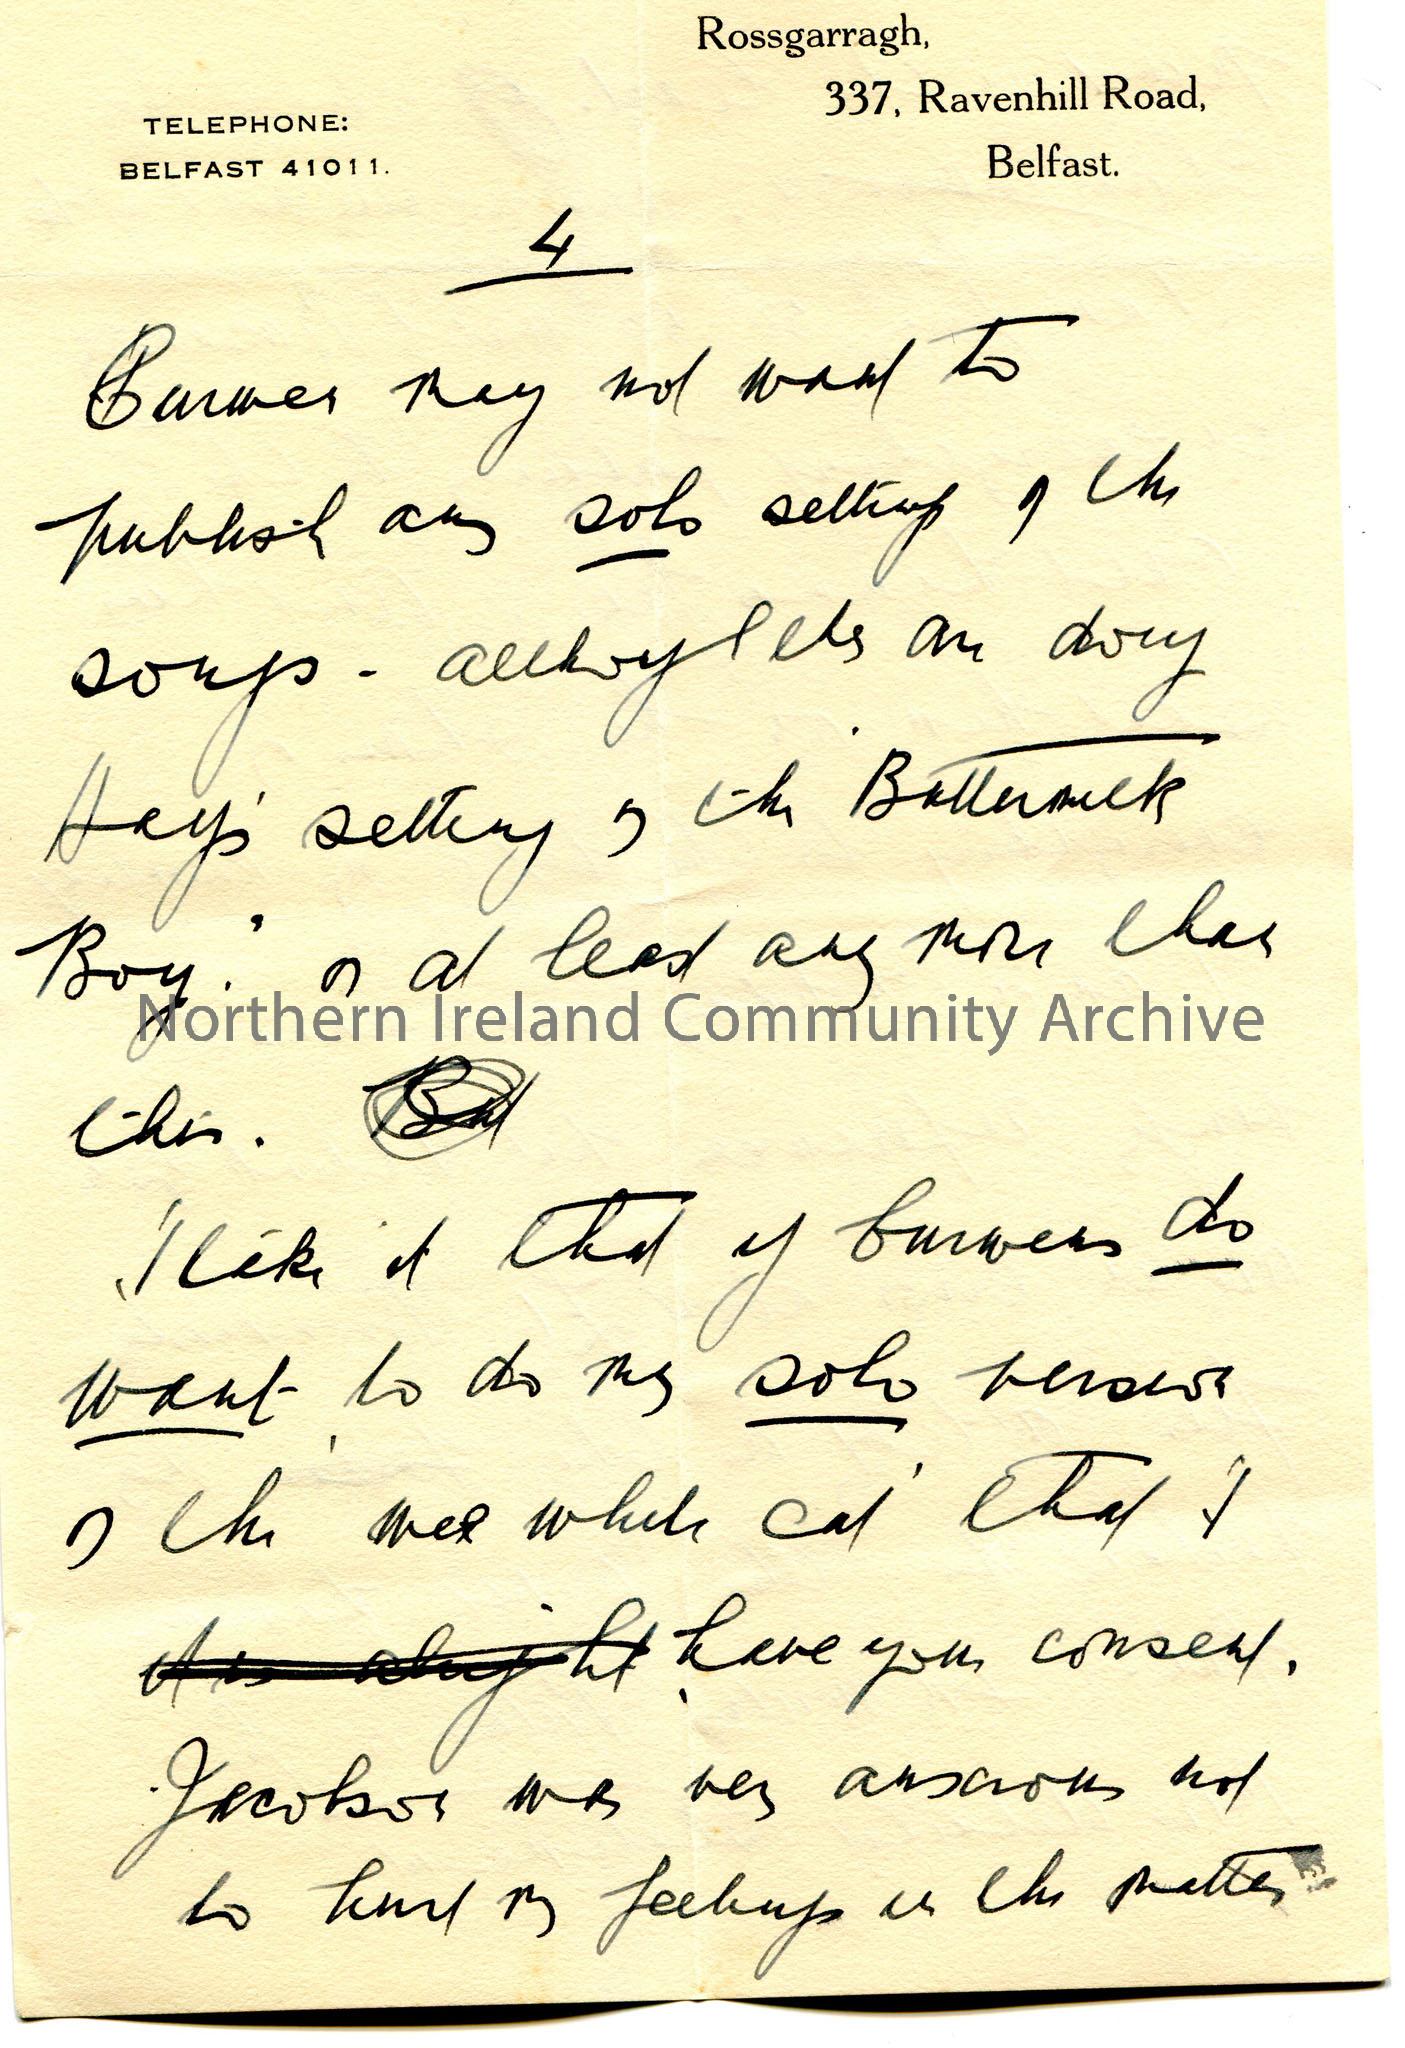 Rossgarragh,
337, Ravenhill Road,
Belfast.
TELEPHONE:
BELFAST 41011.
4
Curwen may not want to
publish any solo settings of the
songs - although they are doing
Hay's setting of the 'Buttermilk
Boy.' or at least any more than
this. But
I take it that if Curwens do
want to do my solo version
of the 'wee white cat' that I
it is alright have your consent.
Jacobson was very anxious not
to hurt my feelings in the matter
Northern Ireland Community Archive